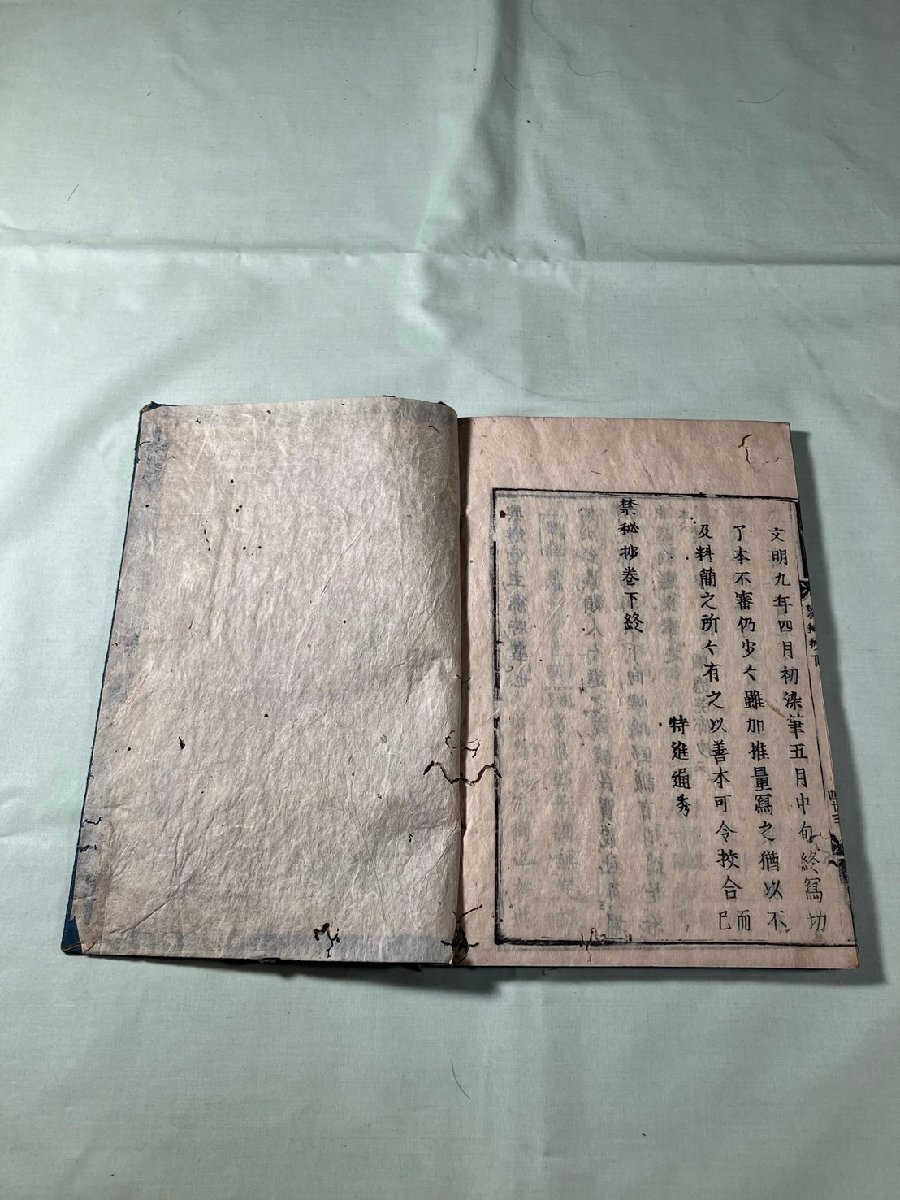 文明九年四月初染筆五月中旬終寫功
了本不審仍少々雖加推量寫之猶以不
及料簡之所々有之以善本可令挍合而已
特進通秀
禁秘抄卷下終